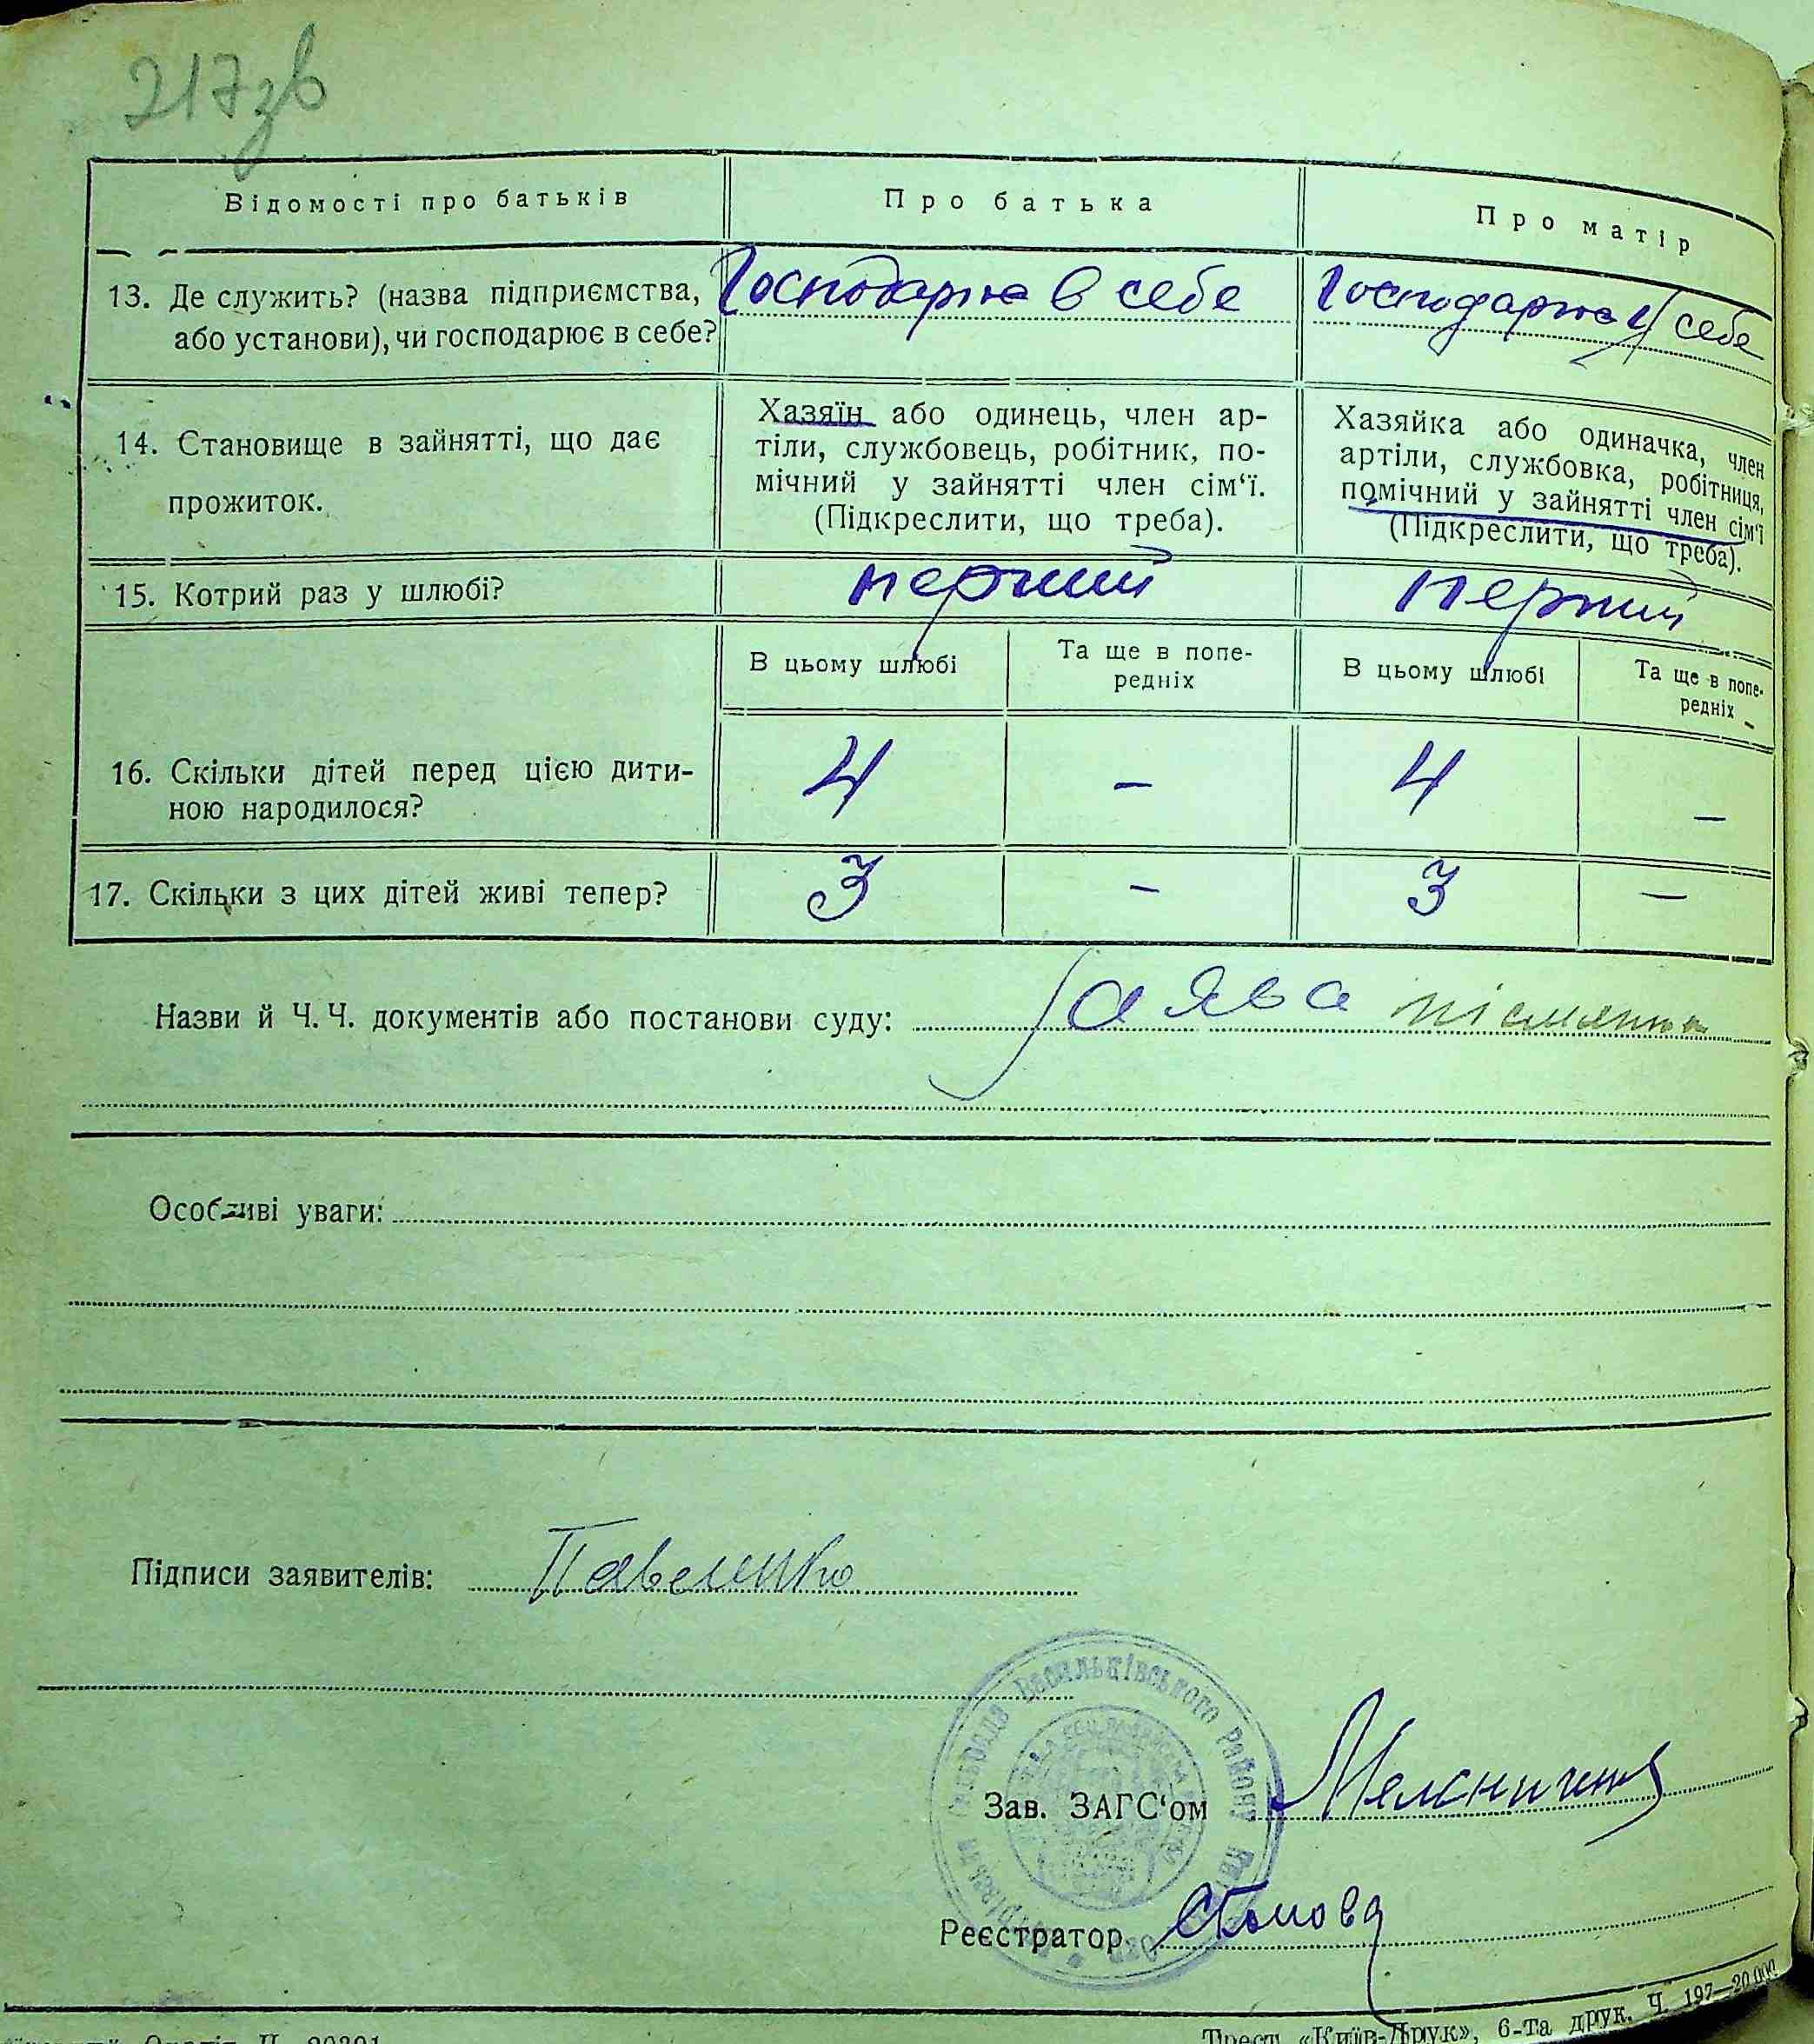 217зв
Відомості про батьків
Про батька
Про матір
13. Де служить? (назва підприємства,
або установи), чи господарює в себе?
Господарює в себе
Господарює у себе
14. Становище в зайнятті, що дає
прожиток.
Хазяїн або одинець, член ар-
тіли, службовець, робітник, по-
мічний у зайнятті член сім‘ї.
(Підкреслити, що треба).
Хазяйка або одиначка, член
артіли, службовка, робітниця,
помічний у зайнятті член сім‘ї
(Підкреслити, що треба).
15. Котрий раз у шлюбі?
перший
перший
В цьому шлюбі
Та ще в попе-
редніх
В цьому шлюбі
Та ще в попе-
редніх
16. Скільки дітей перед цією дити-
ною народилося?
4 – 4 –
17. Скільки з цих дітей живі тепер?
3 – 3 –
Назви й Ч. Ч. документів або постанови суду: Заява
Особливі уваги:
Підписи заявителів: Павленко
Васильківського Району
Зав. ЗАГС‘ом
Реєстратор
Трест «Київ-Друк», 6-та друк. Ч. 197—20.000